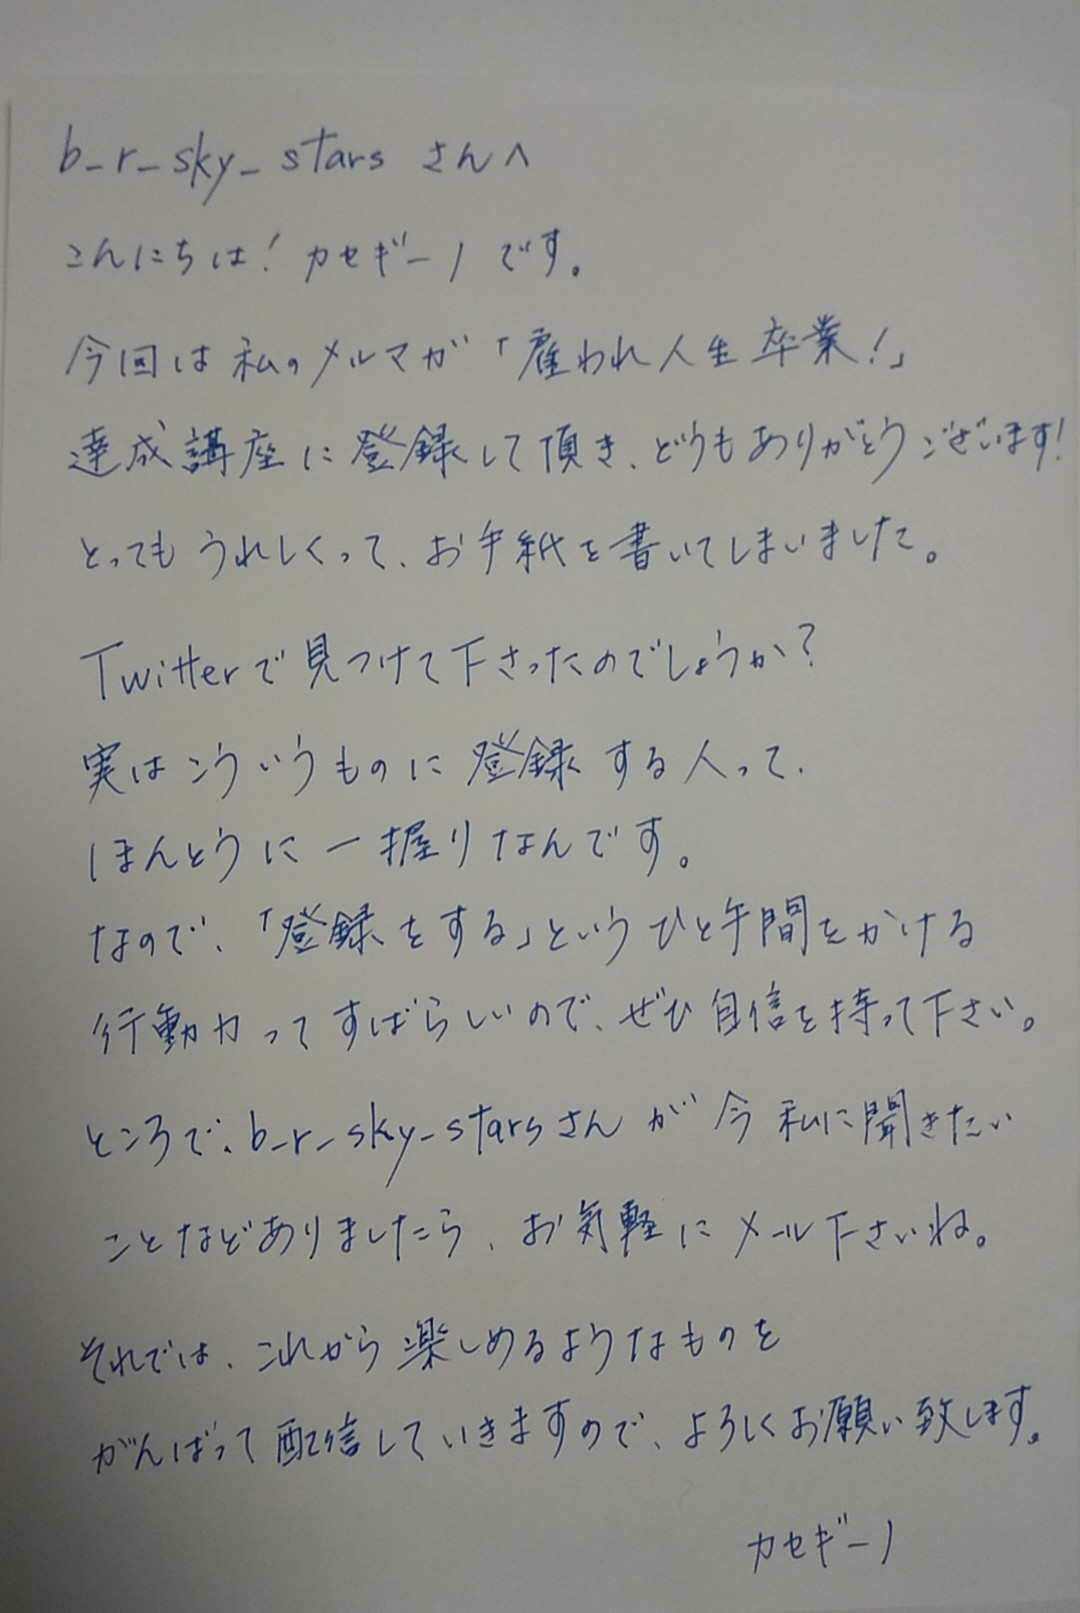 b_r_sky_starsさんへ
こんにちは!カセギーノです。
今回は私のメルマガ「雇われ人生卒業!」
達成講座に登録して頂き、どうもありがとうございます!
とってもうれしくって、お手紙を書いてしまいました。
Twitterで見つけて下さったのでしょうか?
実はこういうものに登録する人って、
ほんとうに一握りなんです。
なので、「登録をする」というひと手間をかける
行動力ってすばらしいので、ぜひ自信を持って下さい。
ところで、b_r_sky_starsさんが今私に聞きたい
ことなどありましたら、お気軽にメール下さいね。
それでは、これから楽しめるようなものを
がんばって配信していきますので、よろしくお願い致します。
カセギーノ